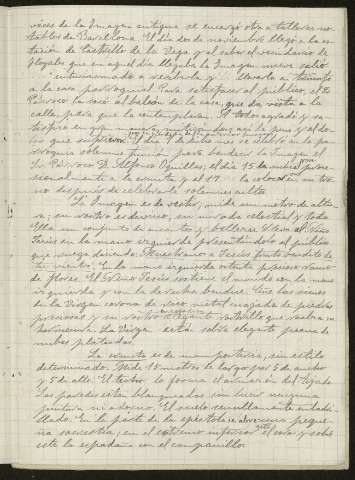 veces de la Imagen antigua se encargó otra a talleres no-
tables de Barcelona. El día dos de noviembre llegó a la es-
tación de Castrillo de la Vega y al saber el vecindario de
que en aquel día llegaba la Imagen nueva salió
a recibirla y llevarla a
a la casa parroquial. Para satisfacer al público, el Sr.
Párroco la sacó al balcón de la casa, que da vista a la
calle, para que la contemplaran. A todos agradó y se
El día 9 de dicho mes se celebró en la pa-
rroquia solemne función para bendecir la Imagen el
Sr. Párroco D. Alfonso Aguilles; el día 15
a la ermita y el 17 la colocación en tro-
no después de celebrarla solemnes cultos.
La Imagen es de vestir, mide un metro de altu-
ra; su rostro es devoto, su mirada celestial y toda
Ella un conjunto de encantos y belleza. Lleva al Niño
Jesús en la mano izquierda presentándolo al público
que sigue diciendo: Muéstranos a Jesús fruto bendito de
tu vientre. En la mano izquierda ostenta precioso ramo
de flores. El Niño Jesús sostiene el mundo con la mano
izquierda y con la derecha bendice. Ciñe las sienes
de la Virgen corona de rico metal majada de piedras
preciosas y su rostro elegante rostrillo que realza su
hermosura. La Virgen está sobre elegante peana de
nubes plateadas.
La ermita es de mampostería, sin estilo
determinado. Mide 15 metros de largo por 5 de ancho
y 5 de alto. El techo lo forma el armazón del tejado.
Las paredes están blanqueadas sin llevar ninguna
pintura ni adorno. El suelo sencillamente enladri-
llado. En la parte de la epístola se observa peque-
ña sacristía; en el extremo inferior el coro y sobre
este la espadaña con el campanillo.